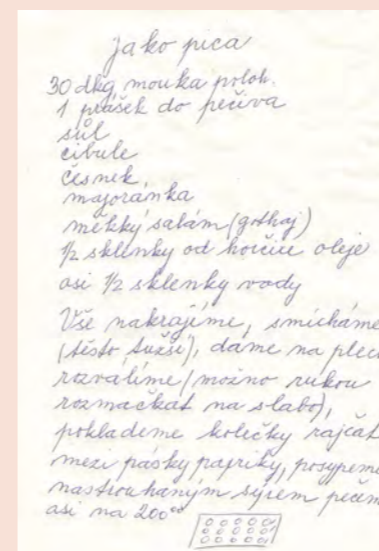 jako pica
30 dkg mouka poloh.
1 prášek do pečiva
sůl
cibule
česnek,
majoránka
měkký salám (gothaj)
1/2 sklenky od hořčice oleje
asi 1/2 sklenky vody
Vše nakrajíme, smícháme
(těsto tužší), dáme na plech
rozvalíme (možno rukou
rozmačkat na slabo),
poklademe kolečky rajčat
mezi pásky papriky, posypeme
nastrouhaným sýrem pečem
asi na 200°